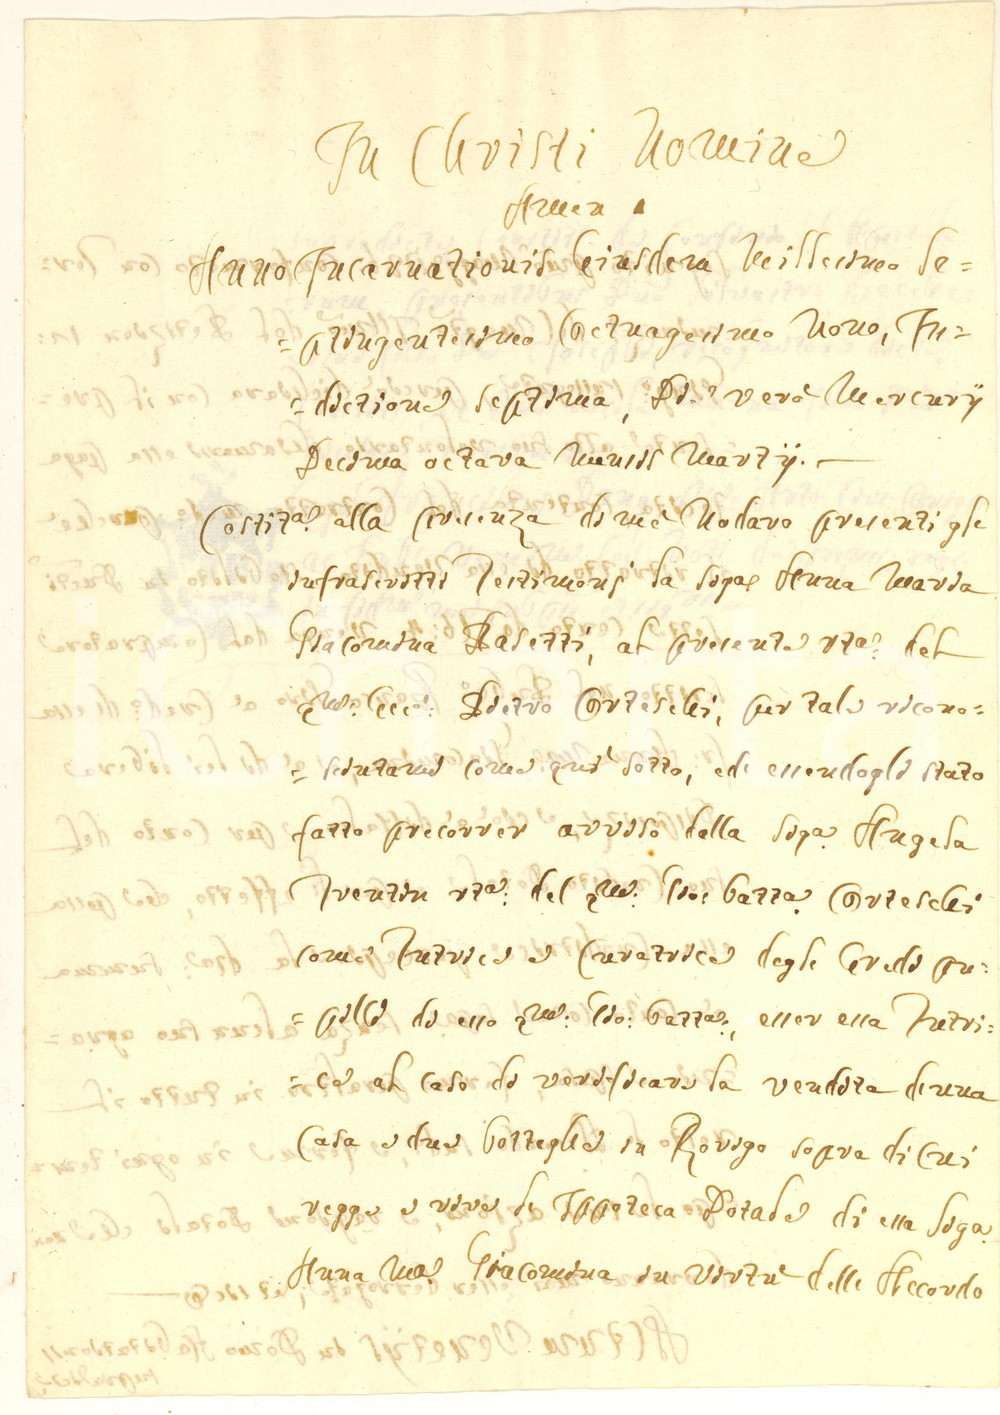 In Christi Nomine
Amen
Anno Incarnationis eiusdem Millesimo Se=
=ptingentesimo Octuagesimo Nono, In=
=dictione septima, Die vero Mercurÿ
Decima octava Mensis Martÿ.
Costit.a alla presenza di me Nodaro presenti gle
infrascritti Testimonj la Siga. Anna Maria
Giacomina Basetti, al presente rta. del
qm. Ecc. Pietro Orteschi, per tale ricono=
=sciutami come qui sotto, ed essendogli stato
fatto precorrer avviso della Siga. Angela
Trentin rta. del qm. Gio: Batta. Orteschi
come Tutrice e Curatrice degle Eredi pu=
=pilli di esso qm. Gio: Batta., esser essa Tutri=
=ce al caso di verificare la vendita di una
Casa e due botteghe in Rovigo sopra di cui
regge e vive le Ippoteca Dotale di essa Siga.
Anna Ma. Giacomina in virtù delle Accordo